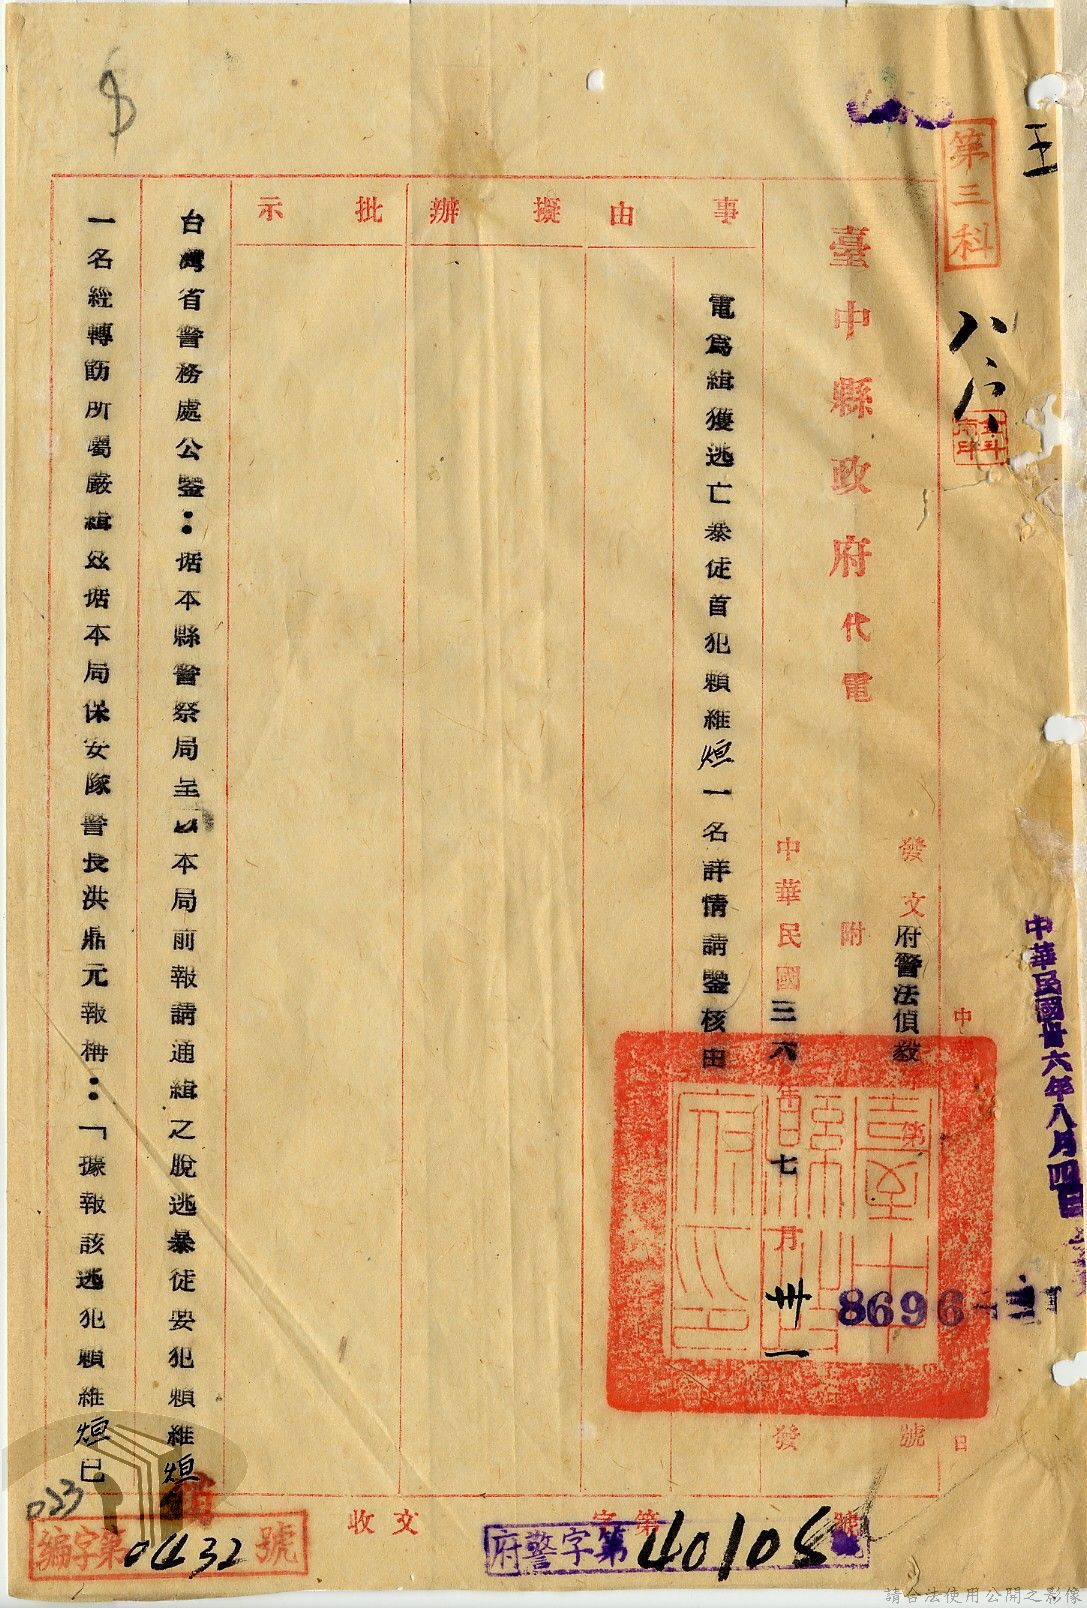 王
第三科
八、六
中華民國卅六年八月四日
8696
臺中縣政府代電
發文府警法偵毅第號
附
中華民國三六年七月卅一日發
事由
擬辦
批示
電為緝獲逃亡暴徒首犯賴維烜一名詳情請鑒核由
台灣省警務處公鑒：据本縣警察局呈以本局前報請通緝之脫逃暴徒要犯賴維烜
一名經轉飭所屬嚴緝玆据本局保安隊警長洪鼎元報稱：「據報該逃犯賴維烜已
收文
字第
號
府警字第40108號
編字第0432號
033
請合法使用公開之影像